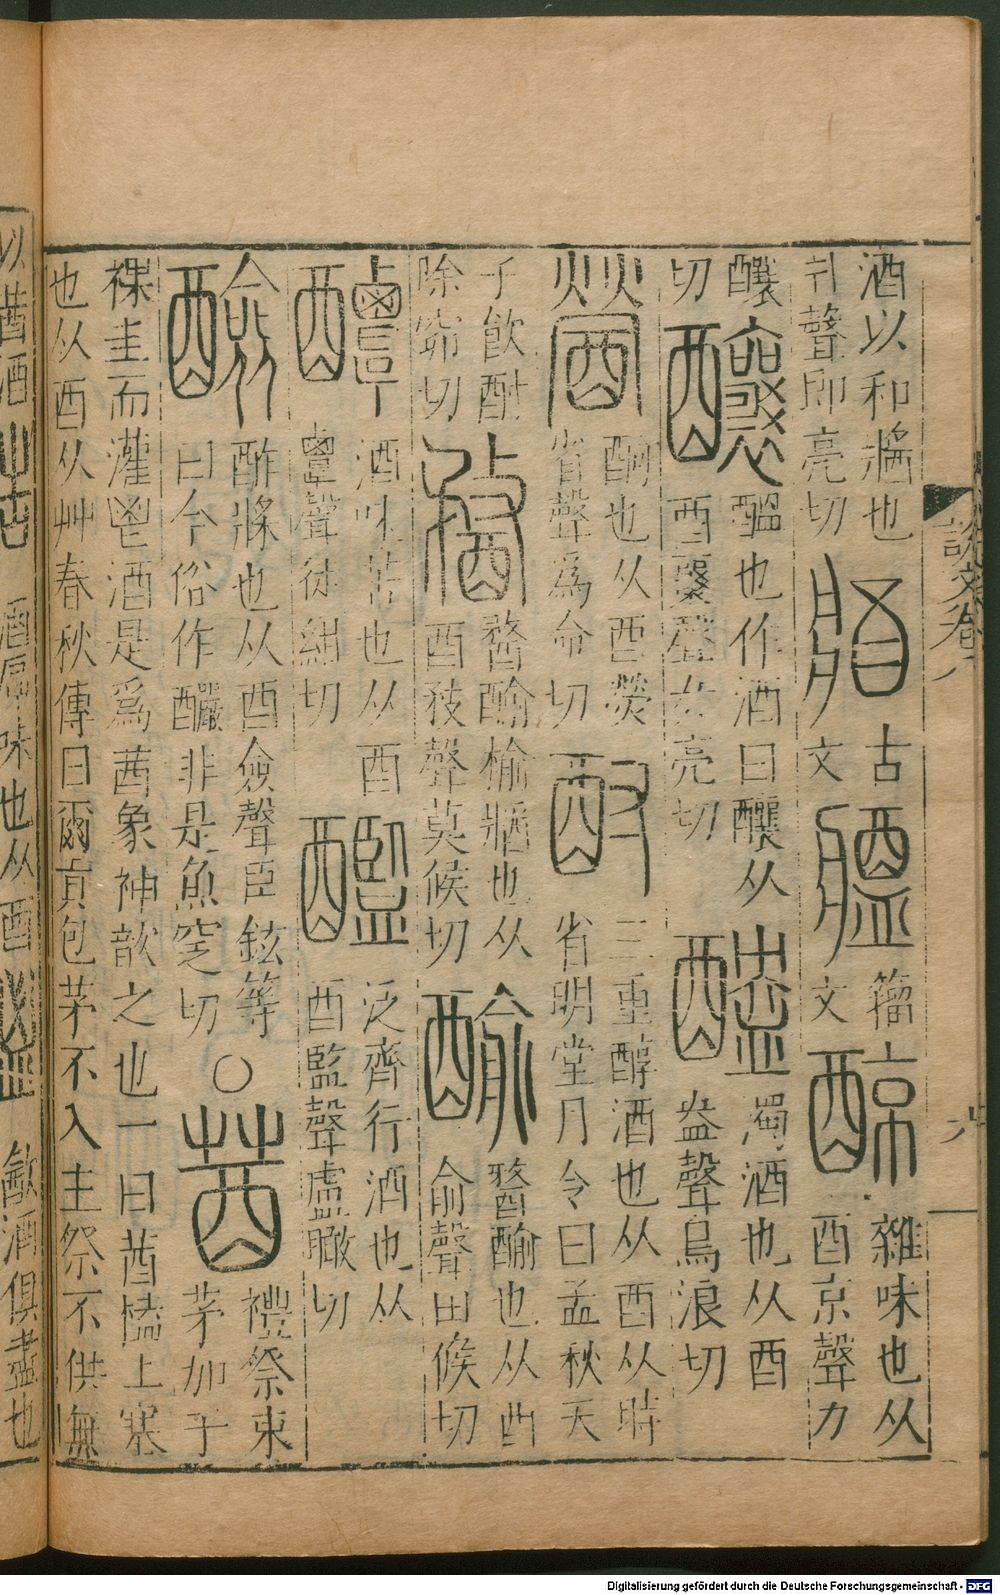 說文卷八
酒以和醬也
爿聲即亮切
古
文
籀
文
醇
雜味也从
酉京聲力
釀
切
釀
醞也作酒曰釀从
酉襄聲女亮切
醠
濁酒也从酉
盎聲烏浪切
醟
酗也从酉熒
省聲爲命切
酎
三重醇酒也从酉从時
省明堂月令曰孟秋天
子飲酎
除窌切
榆醬也从
酉敄聲莫候切
也从酉
俞聲田候切
醰
酒味苦也从酉
覃聲徒紺切
泛齊行酒也从
酉監聲盧瞰切
醶
酢漿也从酉僉聲臣鉉等
曰今俗作釅非是魚窆切
○
莤
禮祭束
茅加于
祼圭而灌鬯酒是爲莤象神歆之也一曰莤榼上塞
也从酉从艸春秋傳曰爾貢包茅不入王祭不供無
以莤酒
酒厚味也从酉
歃酒俱盡也
Digitalisierung gefördert durch die Deutsche Forschungsgemeinschaft - DFG